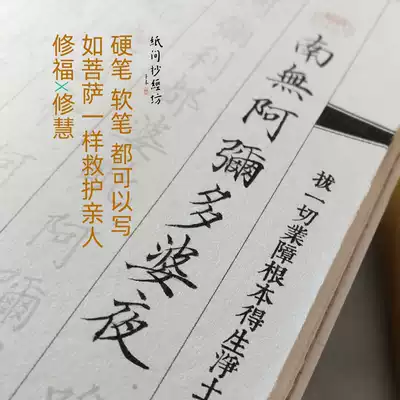 硬笔 软笔 都可以写
如菩萨一样救护亲人
修福×修慧
纸间抄经坊
南無阿彌多婆夜
拔一切業障根本得生淨土